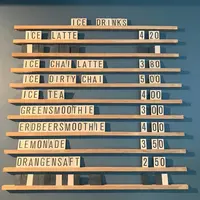 ICE DRINKS
ICE LATTE 4 20
ICE CHAI LATTE 3 80
ICE DIRTY CHAI 5 00
ICE TEA 4 00
GREENSMOOTHIE 3 00
ERDBEERSMOOTHIE 4 00
LEMONADE 3 50
ORANGENSAFT 2 50